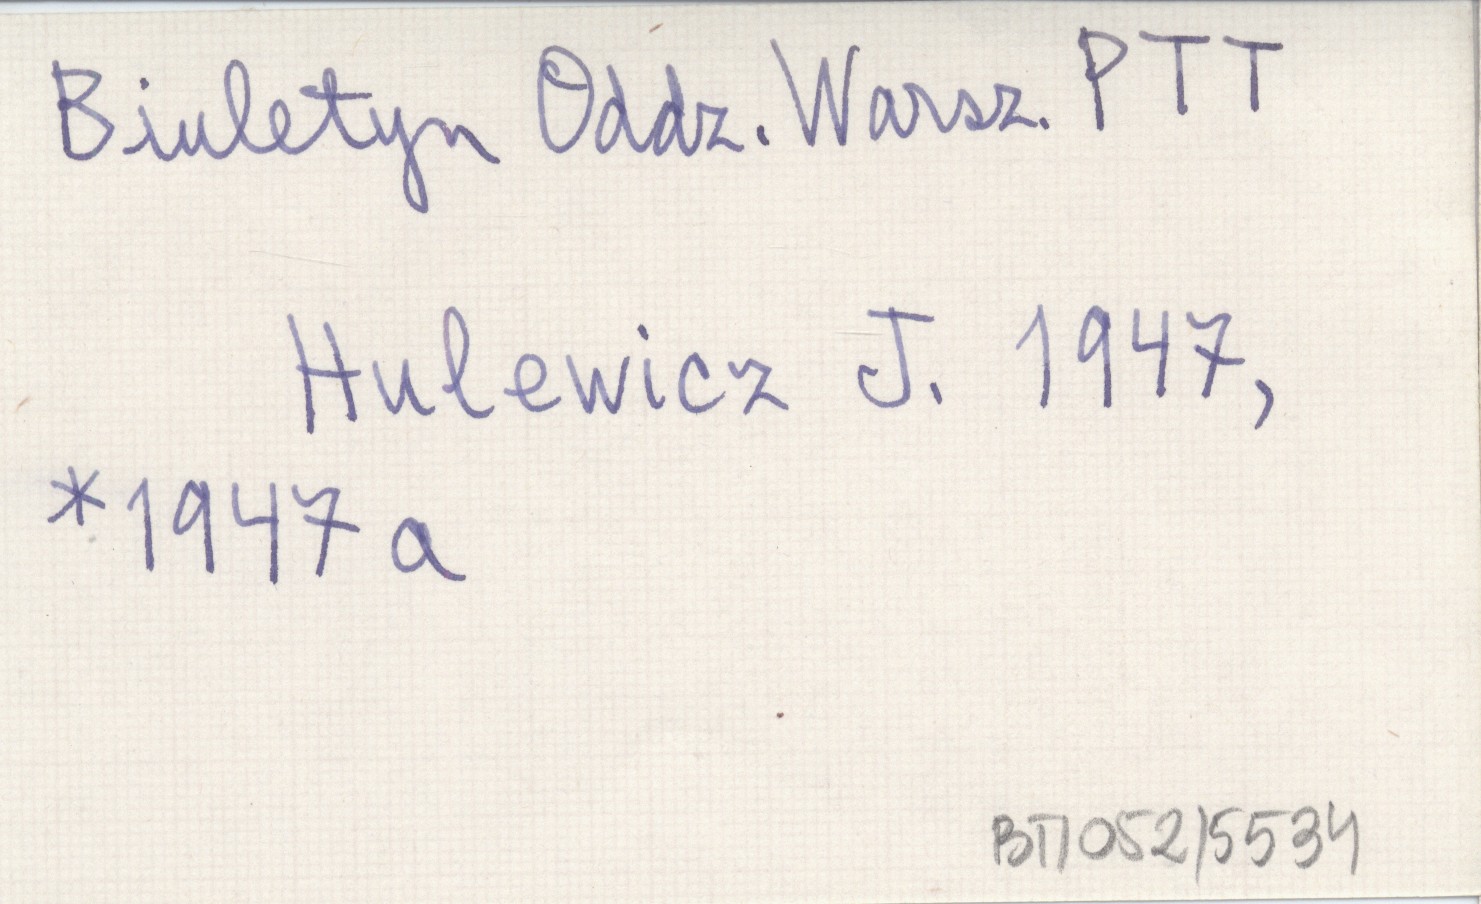 Biuletyn Oddz. Warsz. PTT
Hulewicz J. 1947,
*1947 a
BT/052/5534